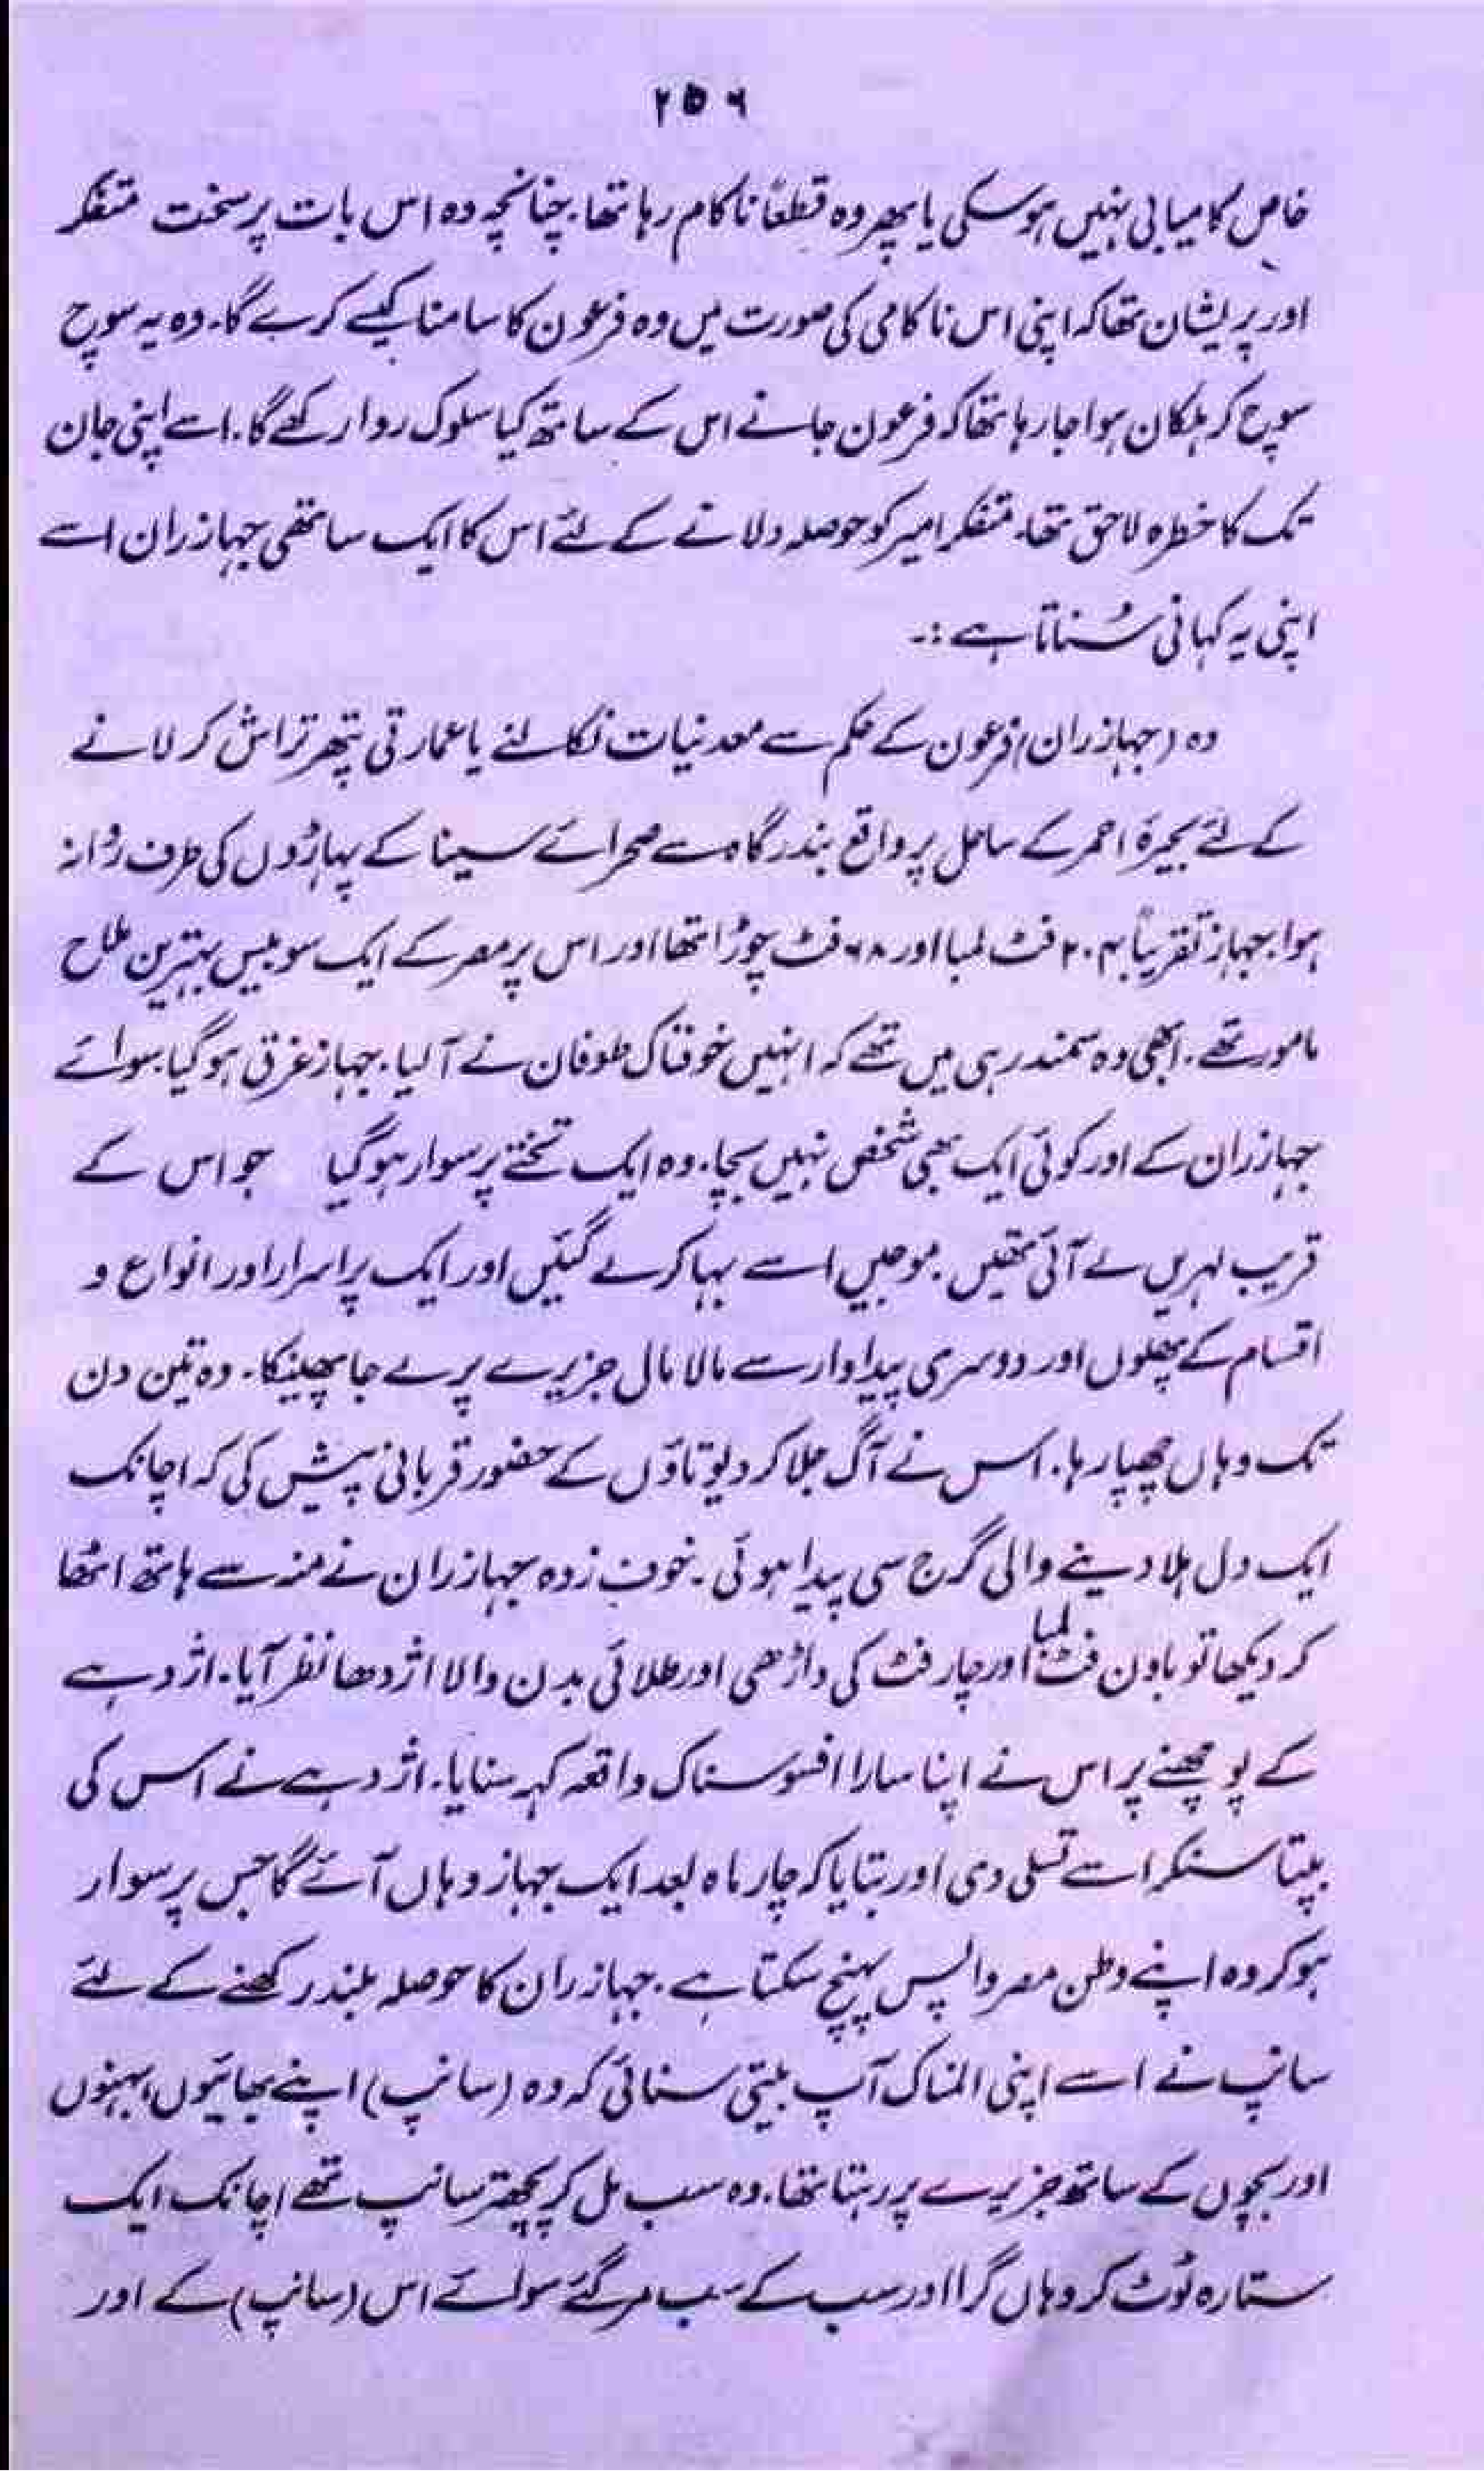 ۲۵۶
خاص کامیابی نہیں ہوسکی یا پھر وہ قطعاً ناکام رہا تھا۔ چنانچہ وہ اس بات پر سخت متفکر
اور پریشان تھا کہ اپنی اس ناکامی کی صورت میں وہ فرعون کا سامنا کیسے کرے گا۔ وہ یہ سوچ
سوچ کر ہلکان ہوا جا رہا تھا کہ فرعون جانے اس کے ساتھ کیا سلوک روا رکھے گا۔ اسے اپنی جان
تک کا خطرہ لاحق تھا۔ متفکر امیر کو حوصلہ دلانے کے لئے اس کا ایک ساتھی جہازران اسے
اپنی یہ کہانی سُناتا ہے :۔
وہ (جہازران) فرعون کے حکم سے معدنیات نکالنے یا عمارتی پتھر تراش کر لانے
کے لئے بحیرۂ احمر کے ساحل پر واقع بندرگاہ سے صحرائے سینا کے پہاڑوں کی طرف روانہ
ہوا۔ جہاز تقریباً ۲۰۴ فٹ لمبا اور ۶۸ فٹ چوڑا تھا اور اس پر مصر کے ایک سو بیس بہترین ملاح
مامور تھے۔ ابھی وہ سمندر ہی میں تھے کہ انہیں خوفناک طوفان نے آ لیا۔ جہاز غرق ہوگیا۔ سوائے
جہازران کے اور کوئی ایک بھی شخص نہیں بچا۔ وہ ایک تختے پر سوار ہوگیا جو اس کے
قریب لہریں لے آئی تھیں۔ موجیں اسے بہا کر لے گئیں اور ایک پراسرار اور انواع و
اقسام کے پھلوں اور دوسری پیداوار سے مالا مال جزیرے پر لے جا پھینکا۔ وہ تین دن
تک وہاں چھپا رہا۔ اس نے آگ جلا کر دیوتاؤں کے حضور قربانی پیش کی کہ اچانک
ایک دل ہلا دینے والی گرج سی پیدا ہوئی۔ خوف زدہ جہازران نے منہ سے ہاتھ اٹھا
کر دیکھا تو باون فٹ لمبا اور چار فٹ کی داڑھی اور طلائی بدن والا اژدھا نظر آیا۔ اژدہے
کے پوچھنے پر اس نے اپنا سارا افسوسناک واقعہ کہہ سنایا۔ اژدہے نے اس کی
بپتا سنکر اسے تسلی دی اور بتایا کہ چار ماہ بعد ایک جہاز وہاں آئے گا جس پر سوار
ہو کر وہ اپنے وطن مصر واپس پہنچ سکتا ہے۔ جہازران کا حوصلہ بلند رکھنے کے لئے
سانپ نے اسے اپنی المناک آپ بیتی سنائی کہ وہ (سانپ) اپنے بھائیوں، بہنوں
اور بچوں کے ساتھ جزیرے پر رہتا تھا۔ وہ سب مل کر پچھتر سانپ تھے اچانک ایک
ستارہ ٹوٹ کر وہاں گرا اور سب کے سب مر گئے سوائے اس (سانپ) کے اور